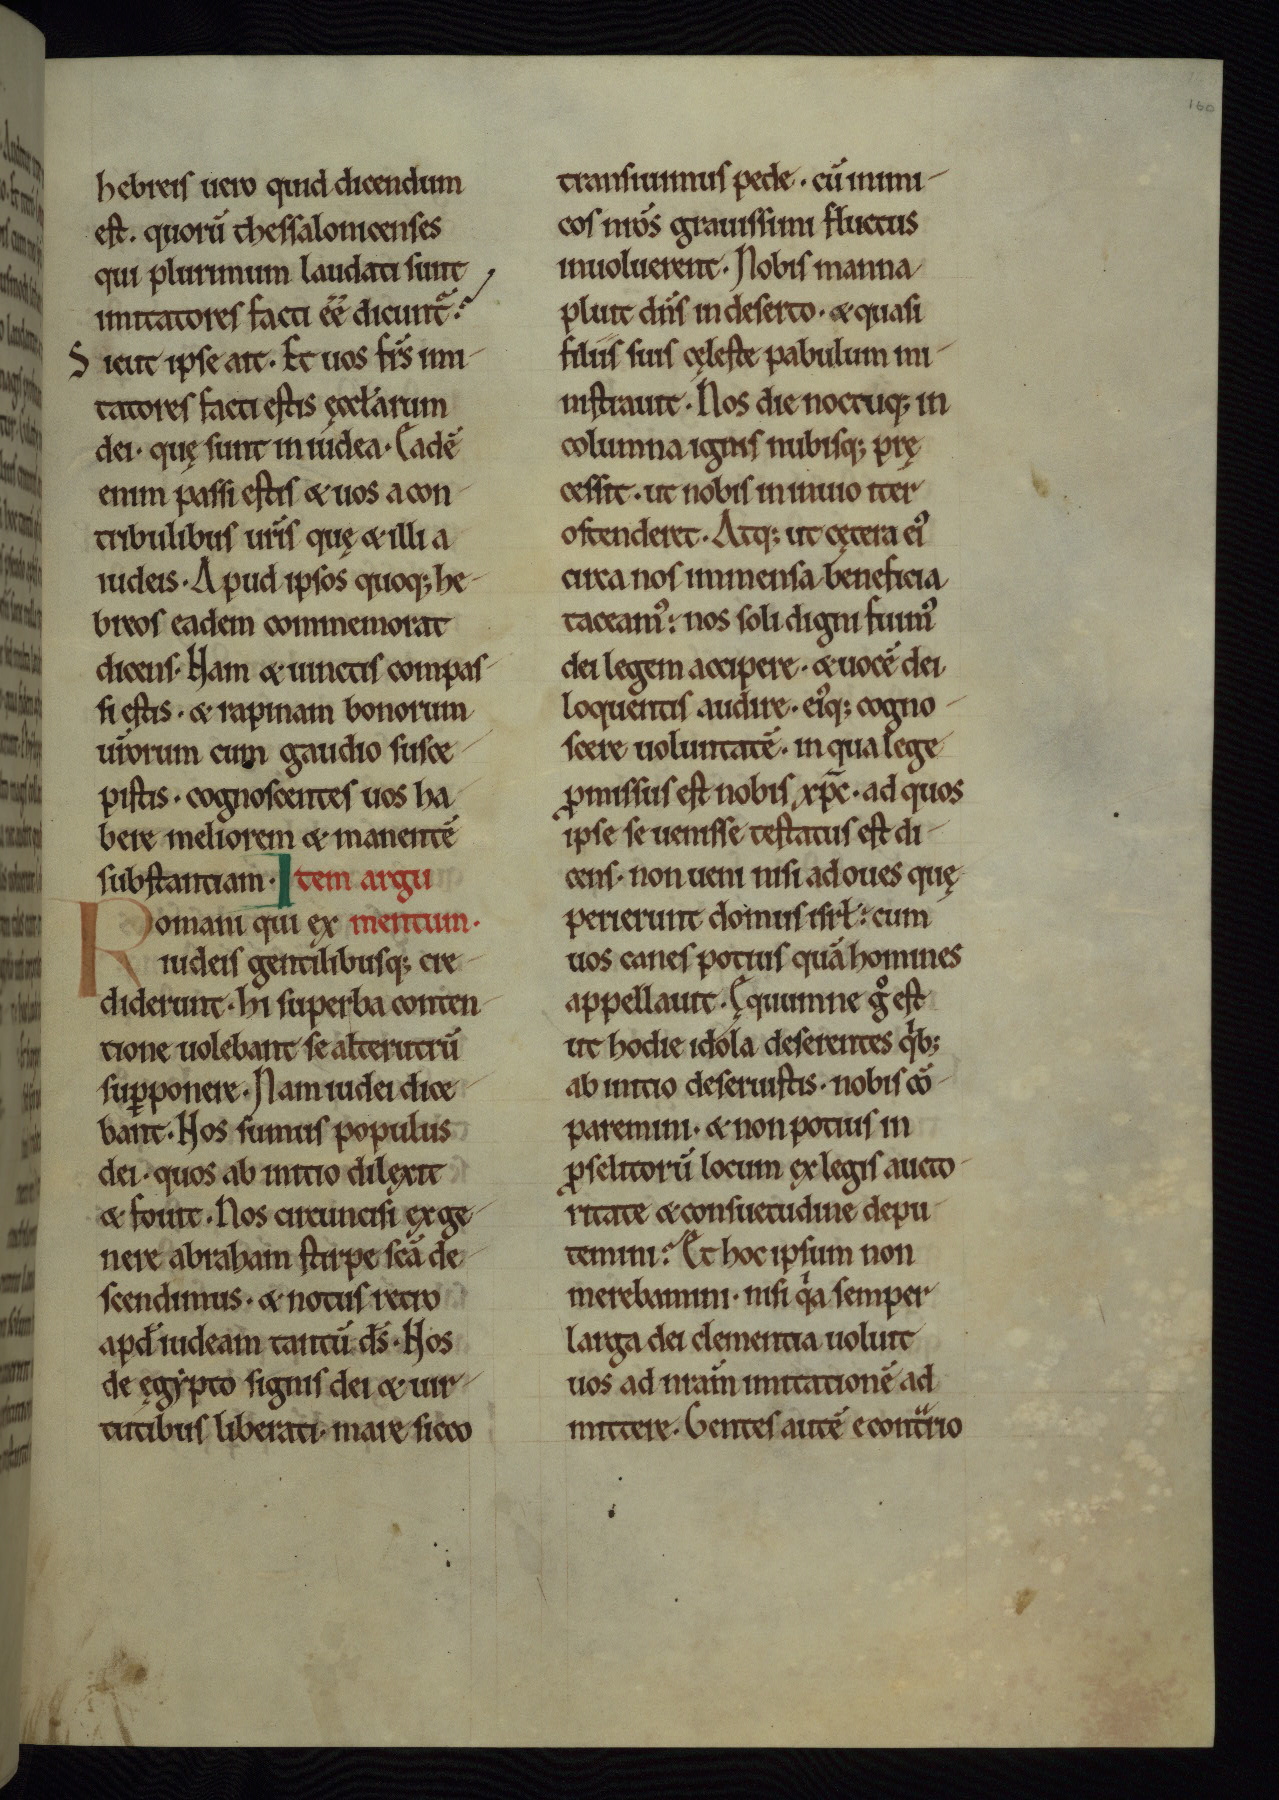 160
hebreis uero quid dicendum
est. quorū thessalonicenses
qui plurimum laudati sunt
imitatores facti eē dicunt̄?
Sicut ipse ait. Et uos fr̄s imi-
tatores facti estis ęccl̄arum
dei. quę sunt in iudea. Eadē
enim passi estis & uos a con-
tribulibus ur̄is quę & illi a
iudeis. Apud ipsos quoq; he-
breos eadem commemorat
dicens. Nam & uinctis compas-
si estis. & rapinam bonorum
ur̄orum cum gaudio susce-
pistis. cognoscentes uos ha-
bere meliorem & manentē
substantiam. Item argu
Romani qui ex mentum.
iudeis gentilibusq; cre-
diderunt. hi superba conten-
tione uolebant se alterutrū
sup̄ponere. Nam iudei dice-
bant. Nos sumus populus
dei. quos ab initio dilexit
& fouit. Nos circuncisi ex ge-
nere abraham stirpe sc̄a de-
scendimus. & notus retro
apd̄ iudeam tantū d̄s. Nos
de ęgypto signis dei & uir-
tutibus liberati. mare sicco
transiuimus pede. cū inimi-
cos nr̄os grauissimi fluctus
inuoluerent. Nobis manna
pluit dn̄s in deserto. & quasi
filiis suis cęleste pabulum mi-
nistrauit. Nos die noctuq; in
columna ignis nubisq; prę-
cessit. ut nobis in inuio iter
ostenderet. Atq; ut cętera ei᾽
circa nos immensa beneficia
taceam᾽: nos soli digni fuim᾽
dei legem accipere. & uocē dei
loquentis audire. ei᾽q; cogno-
scere uoluntatē. in qua lege
ꝓmissus est nobis xp̄c. ad quos
ipse se uenisse testatus est di-
cens. non ueni nisi ad oues quę
perierunt domus isrl̄: cum
uos canes potius quā homines
appellauit. Ęquumne gͦ est
ut hodie idola deserentes qͥb;
ab initio deseruistis. nobis cō-
paremini. & non potius in
ꝓselitorū locum ex legis aucto-
ritate & consuetudine depu-
temini? Et hoc ipsum non
merebamini. nisi qͥa semper
larga dei clementia uoluit
uos ad nr̄am imitationē ad-
mittere. Gentes autē econtͣrio